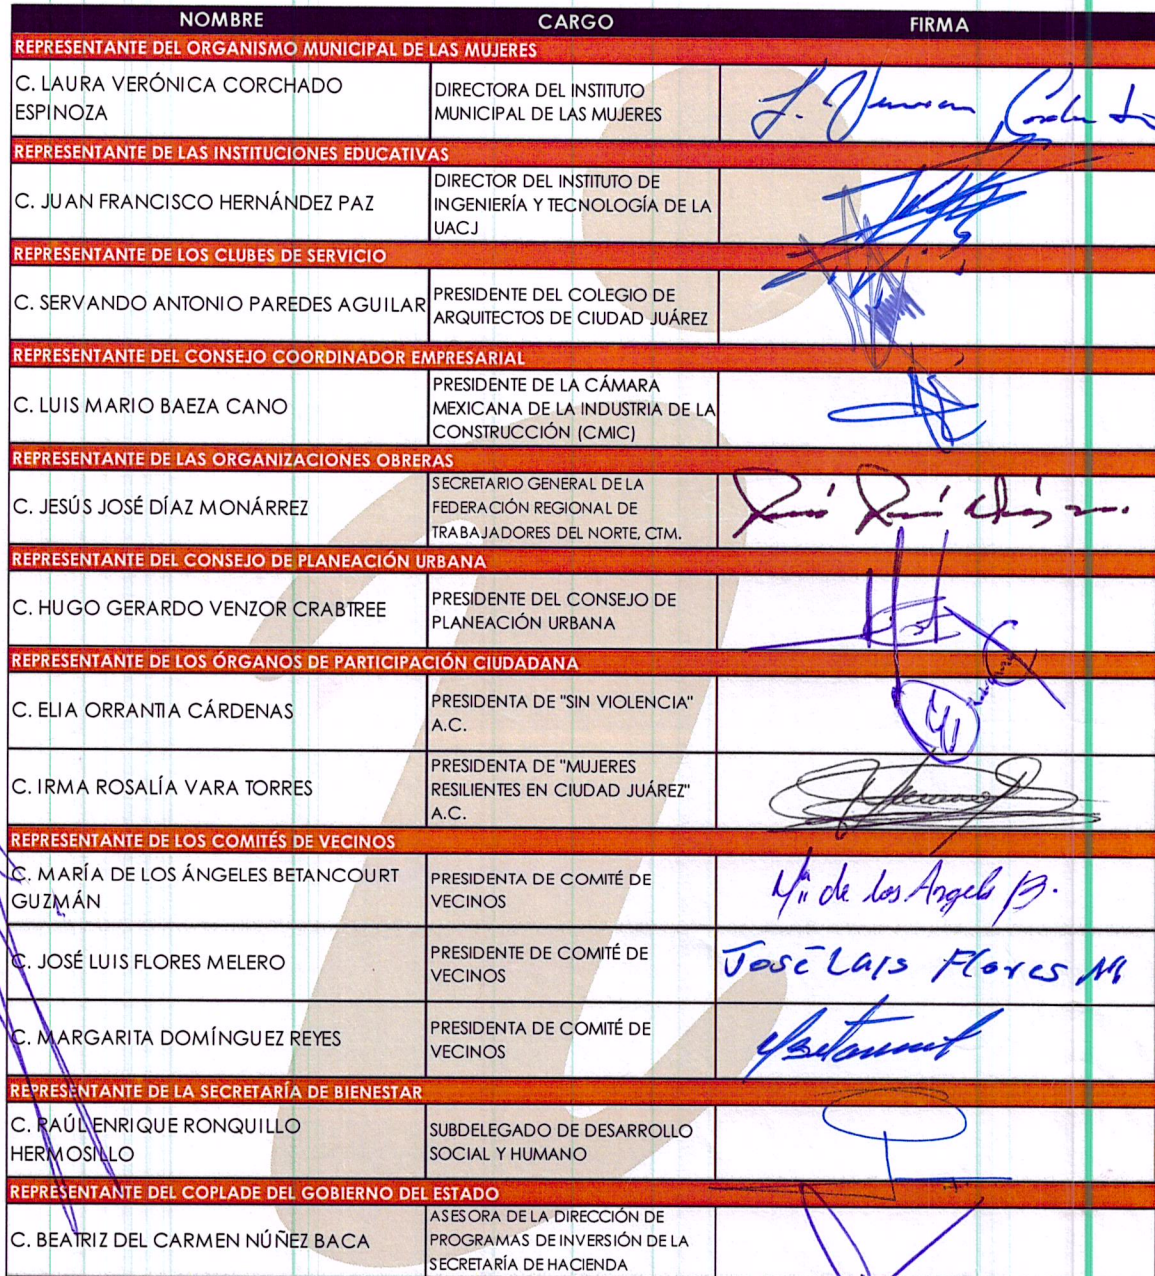 NOMBRE CARGO FIRMA
REPRESENTANTE DEL ORGANISMO MUNICIPAL DE LAS MUJERES
C. LAURA VERÓNICA CORCHADO
ESPINOZA
DIRECTORA DEL INSTITUTO
MUNICIPAL DE LAS MUJERES
REPRESENTANTE DE LAS INSTITUCIONES EDUCATIVAS
C. JUAN FRANCISCO HERNÁNDEZ PAZ
DIRECTOR DEL INSTITUTO DE
INGENIERÍA Y TECNOLOGÍA DE LA
UACJ
REPRESENTANTE DE LOS CLUBES DE SERVICIO
C. SERVANDO ANTONIO PAREDES AGUILAR
PRESIDENTE DEL COLEGIO DE
ARQUITECTOS DE CIUDAD JUÁREZ
REPRESENTANTE DEL CONSEJO COORDINADOR EMPRESARIAL
C. LUIS MARIO BAEZA CANO
PRESIDENTE DE LA CÁMARA
MEXICANA DE LA INDUSTRIA DE LA
CONSTRUCCIÓN (CMIC)
REPRESENTANTE DE LAS ORGANIZACIONES OBRERAS
C. JESÚS JOSÉ DÍAZ MONÁRREZ
SECRETARIO GENERAL DE LA
FEDERACIÓN REGIONAL DE
TRABAJADORES DEL NORTE, CTM.
REPRESENTANTE DEL CONSEJO DE PLANEACIÓN URBANA
C. HUGO GERARDO VENZOR CRABTREE
PRESIDENTE DEL CONSEJO DE
PLANEACIÓN URBANA
REPRESENTANTE DE LOS ÓRGANOS DE PARTICIPACIÓN CIUDADANA
C. ELIA ORRANTIA CÁRDENAS
PRESIDENTA DE "SIN VIOLENCIA"
A.C.
C. IRMA ROSALÍA VARA TORRES
PRESIDENTA DE "MUJERES
RESILIENTES EN CIUDAD JUÁREZ"
A.C.
REPRESENTANTE DE LOS COMITÉS DE VECINOS
C. MARÍA DE LOS ÁNGELES BETANCOURT
GUZMÁN
PRESIDENTA DE COMITÉ DE
VECINOS
de los Angels B.
C. JOSÉ LUIS FLORES MELERO
PRESIDENTE DE COMITÉ DE
VECINOS
José Luis Flores M
C. MARGARITA DOMÍNGUEZ REYES
PRESIDENTA DE COMITÉ DE
VECINOS
REPRESENTANTE DE LA SECRETARÍA DE BIENESTAR
C. RAÚL ENRIQUE RONQUILLO
HERMOSILLO
SUBDELEGADO DE DESARROLLO
SOCIAL Y HUMANO
REPRESENTANTE DEL COPLADE DEL GOBIERNO DEL ESTADO
C. BEATRIZ DEL CARMEN NÚÑEZ BACA
ASESORA DE LA DIRECCIÓN DE
PROGRAMAS DE INVERSIÓN DE LA
SECRETARÍA DE HACIENDA